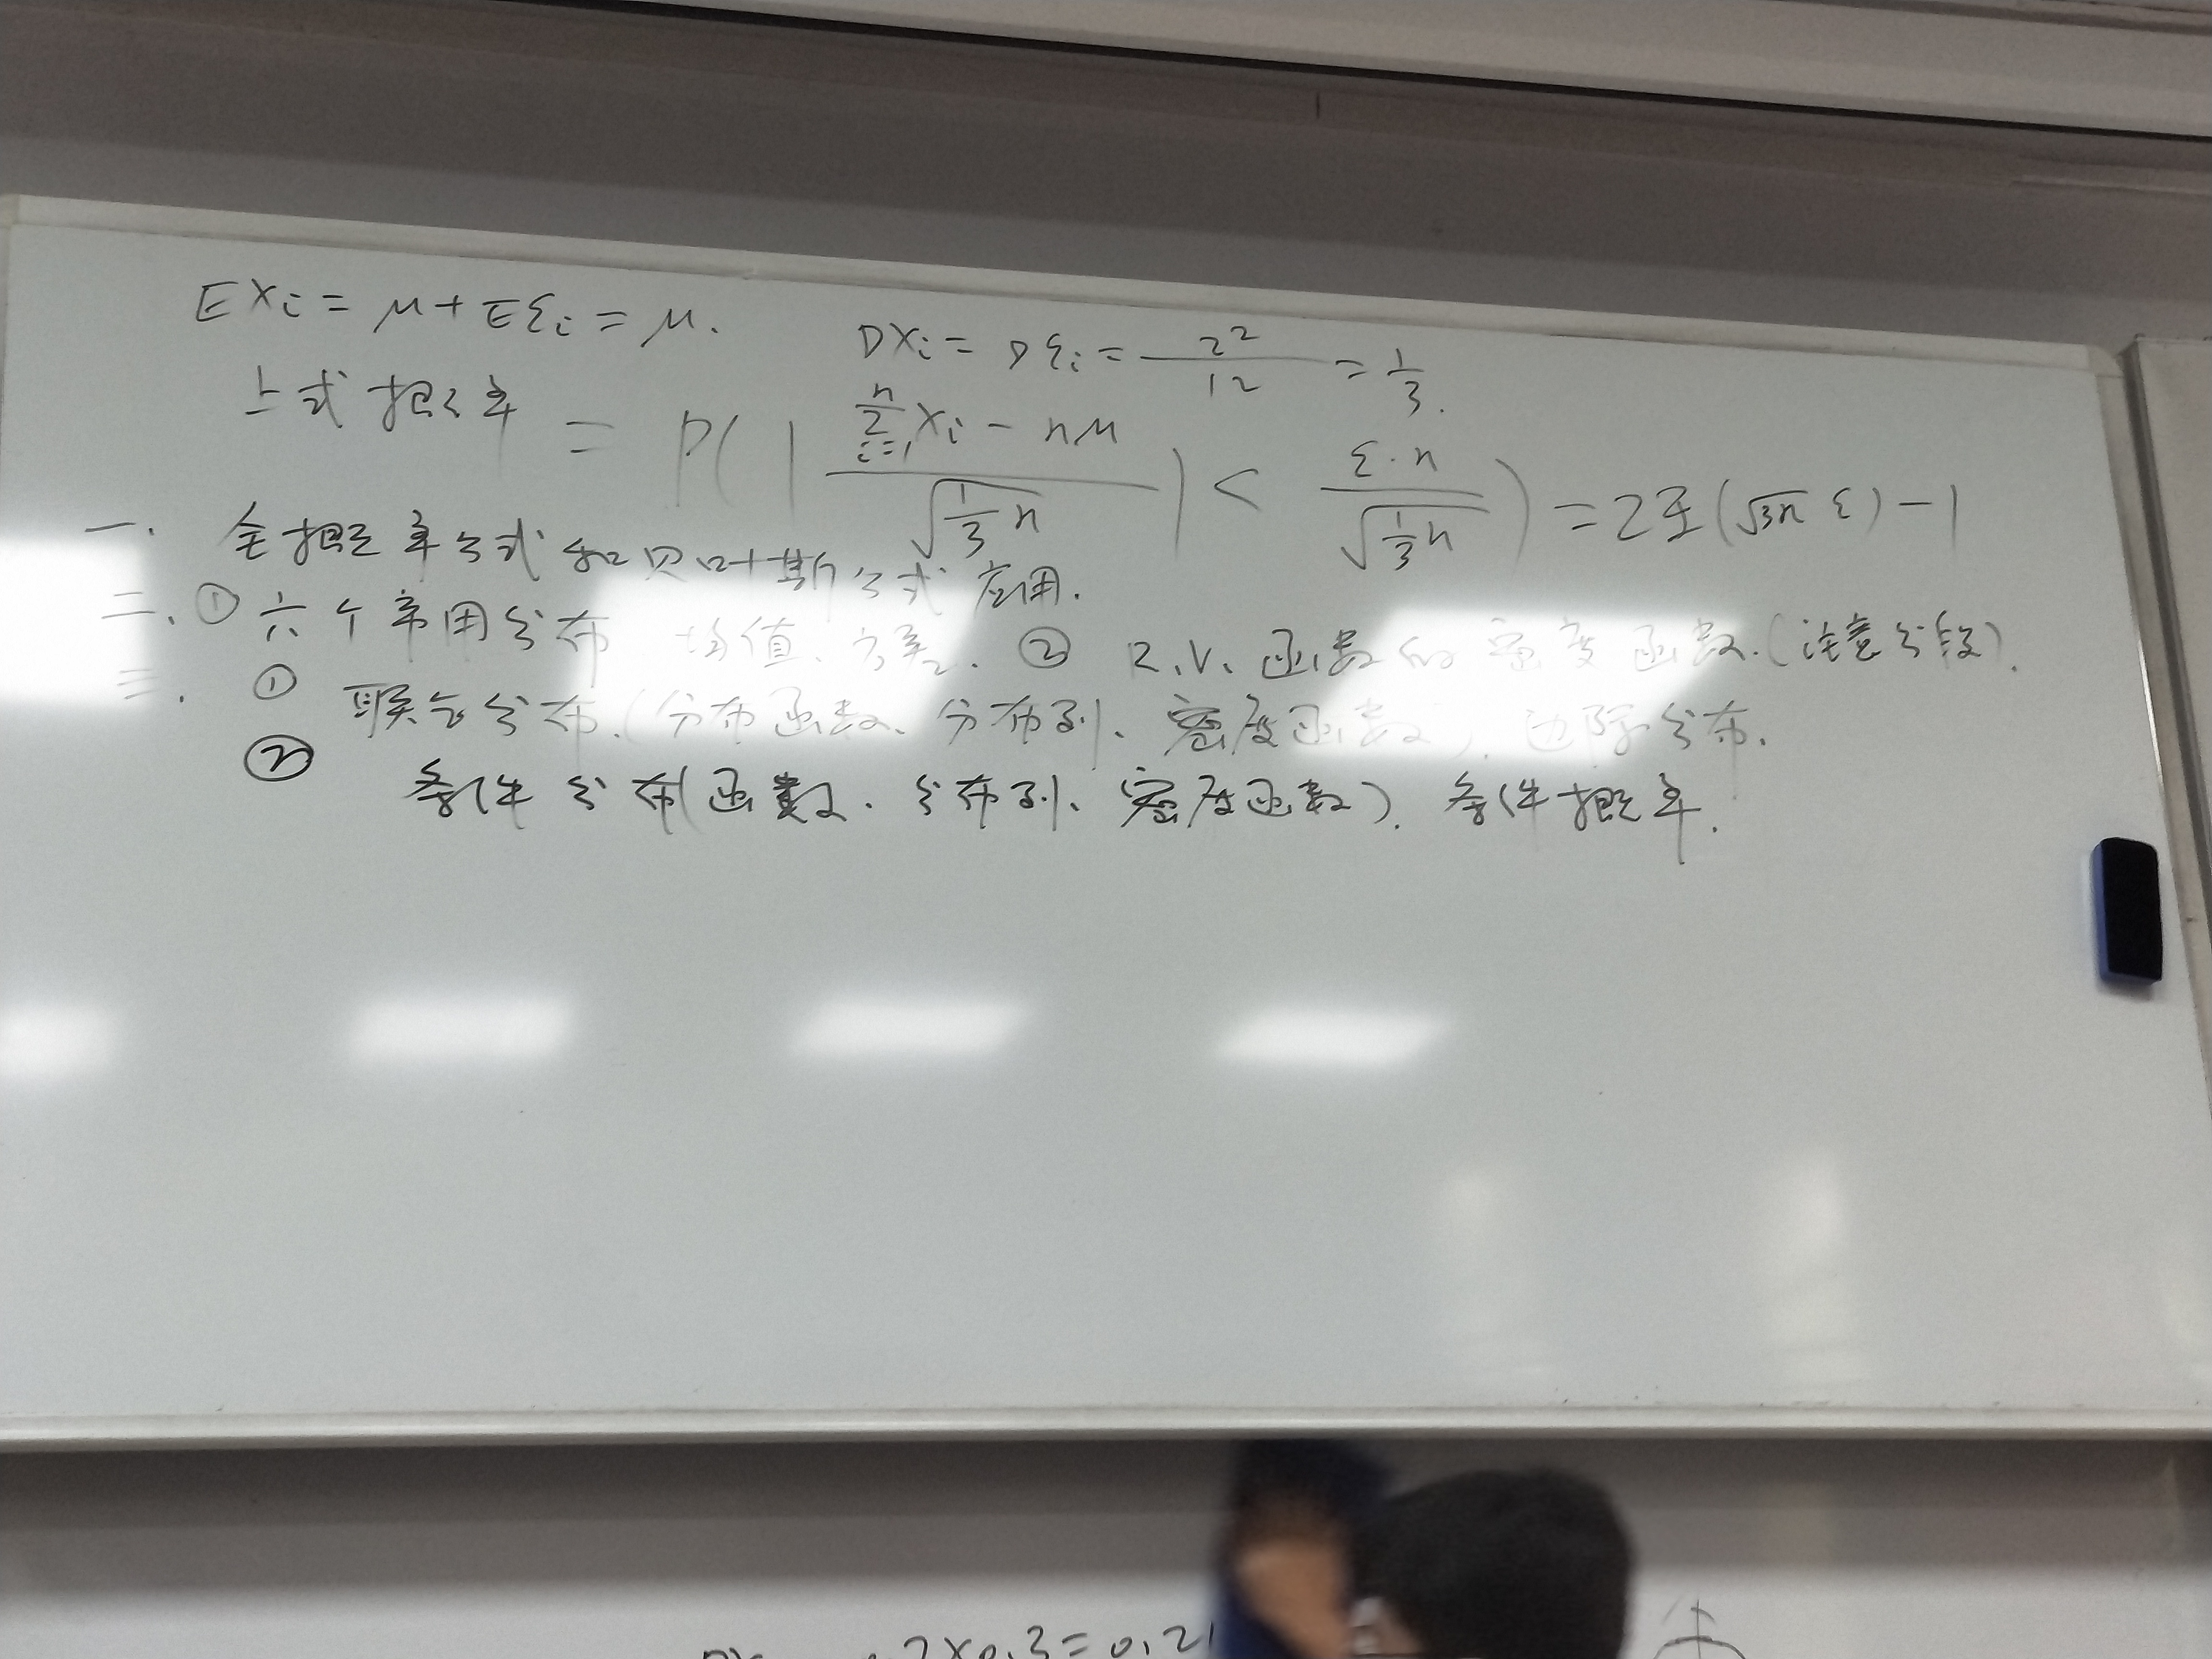 EXi = μ + Eεi = μ.
DXi = Dεi = 2²/12 = 1/3.
上式概率 = P(| (∑_{i=1}^{n} Xi − nμ) / √(1/3 n) | < ε·n / √(1/3 n)) = 2Φ(√3n ε) − 1
一. 全概率公式和贝叶斯公式应用.
二. ① 六个常用分布 均值、方差. ② R.V. 函数的密度函数.(注意分段).
三. ① 联合分布.(分布函数、分布列、密度函数). 边际分布.
② 条件分布(函数、分布列、密度函数). 条件概率.
7×0.3=0.21